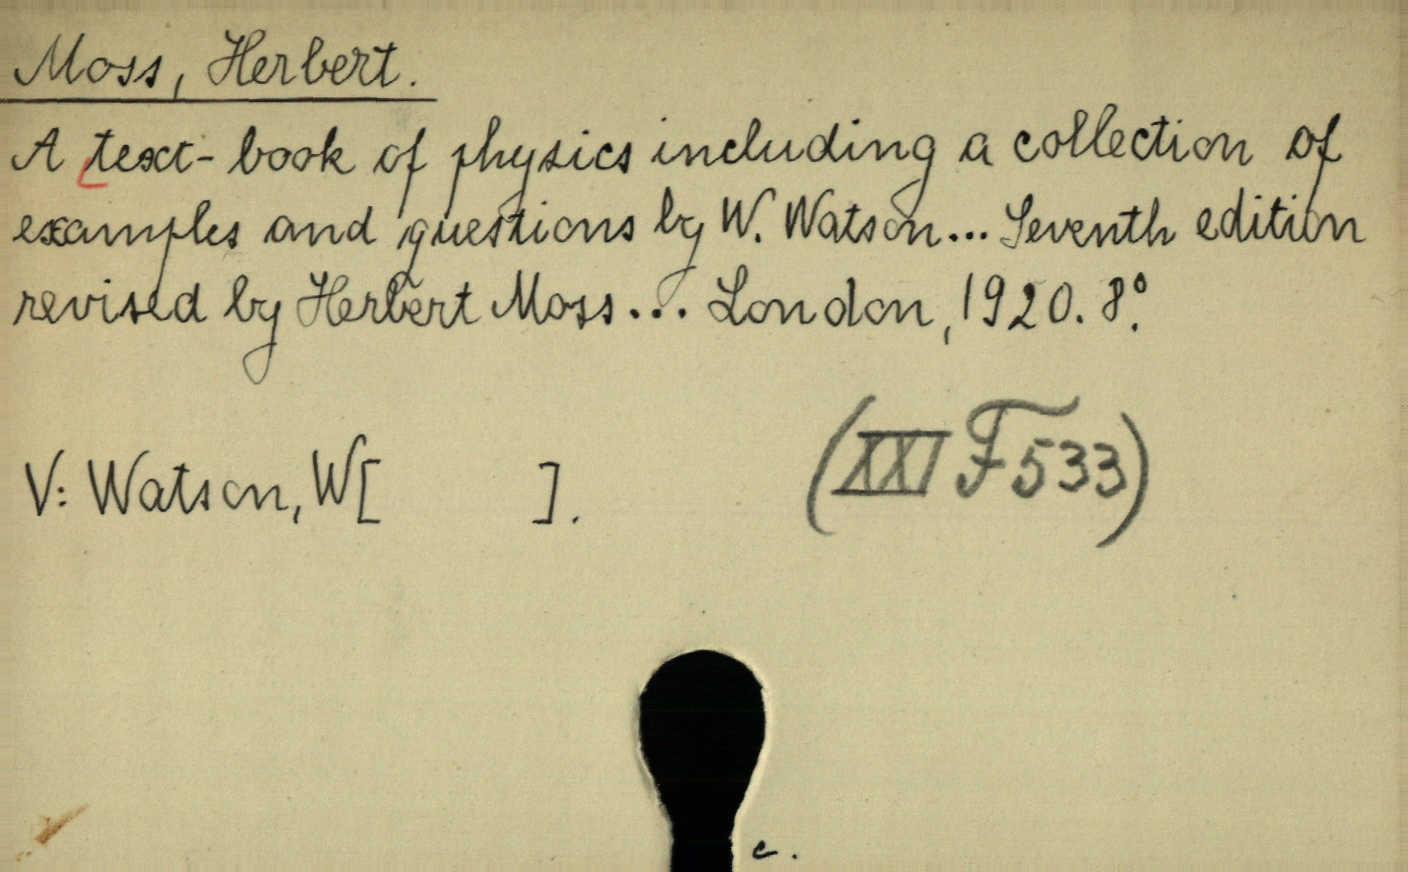 Moss, Herbert.
A text-book of physics including a collection of
examples and questions by W. Watson... Seventh edition
revised by Herbert Moss... London, 1920. 8°.
V: Watson, W[ ].
(XXI F 533)
c.